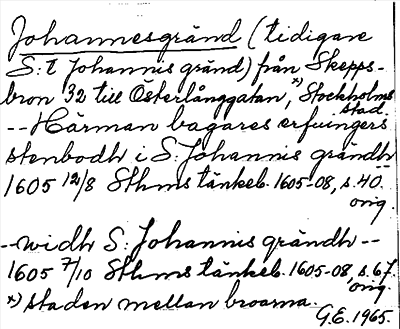 Johannesgränd (tidigare
S:t Johannis gränd) från Skepps-
bron 32 till Österlånggatan, x) Stockholms
stad.
-- Härman bagares erfuingers
stenbodh i S. Johannis grändh --
1605 12/8 Sthms tänkeb. 1605-08, s. 40.
orig.
-- widh S. Johannis grändh --
1605 7/10 Sthms tänkeb. 1605-08, s. 67.
orig.
x) staden mellan broarna.
G.E. 1965.